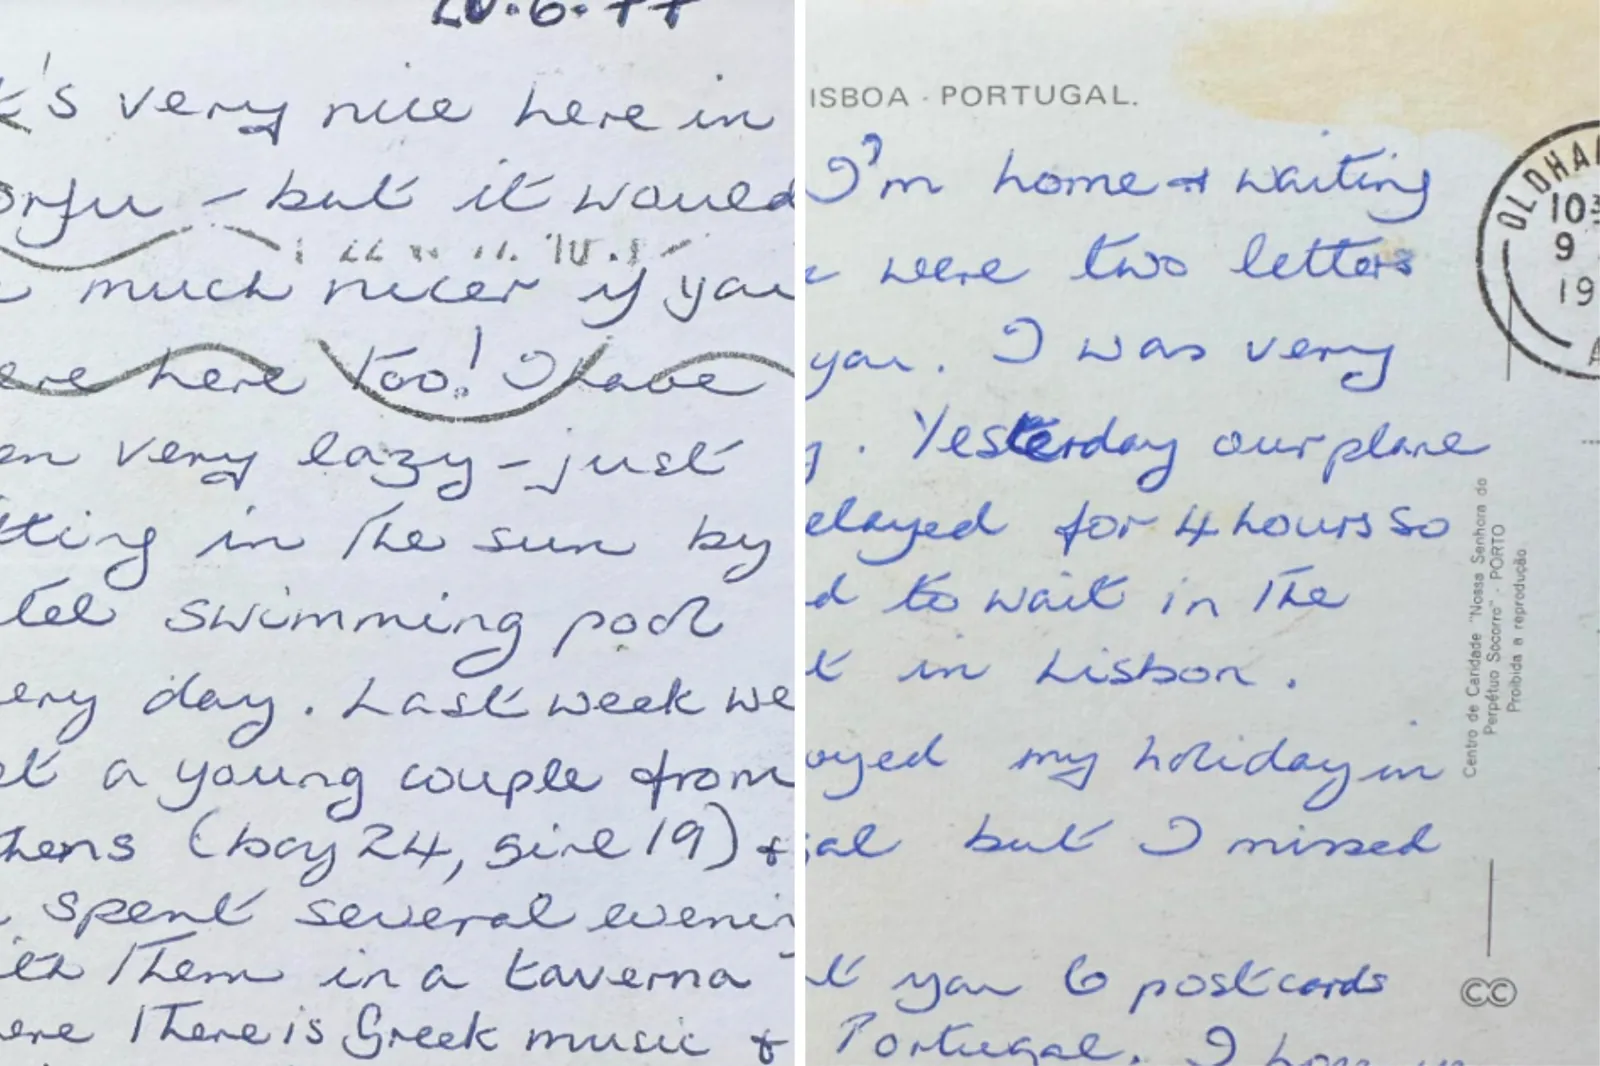 20.6.77
t's very nice here in
orfu - but it would
much nicer if you
ere here too! I have
en very lazy - just
tting in the sun by
tel swimming pool
ery day. Last week we
et a young couple from
thens (boy 24, girl 19) &
spent several evenin
ith them in a taverna
ere there is Greek music &
ISBOA - PORTUGAL.
I'm home & waiting
e were two letters
you. I was very
y. Yesterday our plane
elayed for 4 hours so
d to wait in the
t in Lisbon.
oyed my holiday in
gal but I missed
t you 6 postcards
Portugal. I hope
OLDHA
10
9
19
Centro de Caridade "Nossa Senhora do
Perpétuo Socorro" - PORTO
Proibida a reprodução
CC